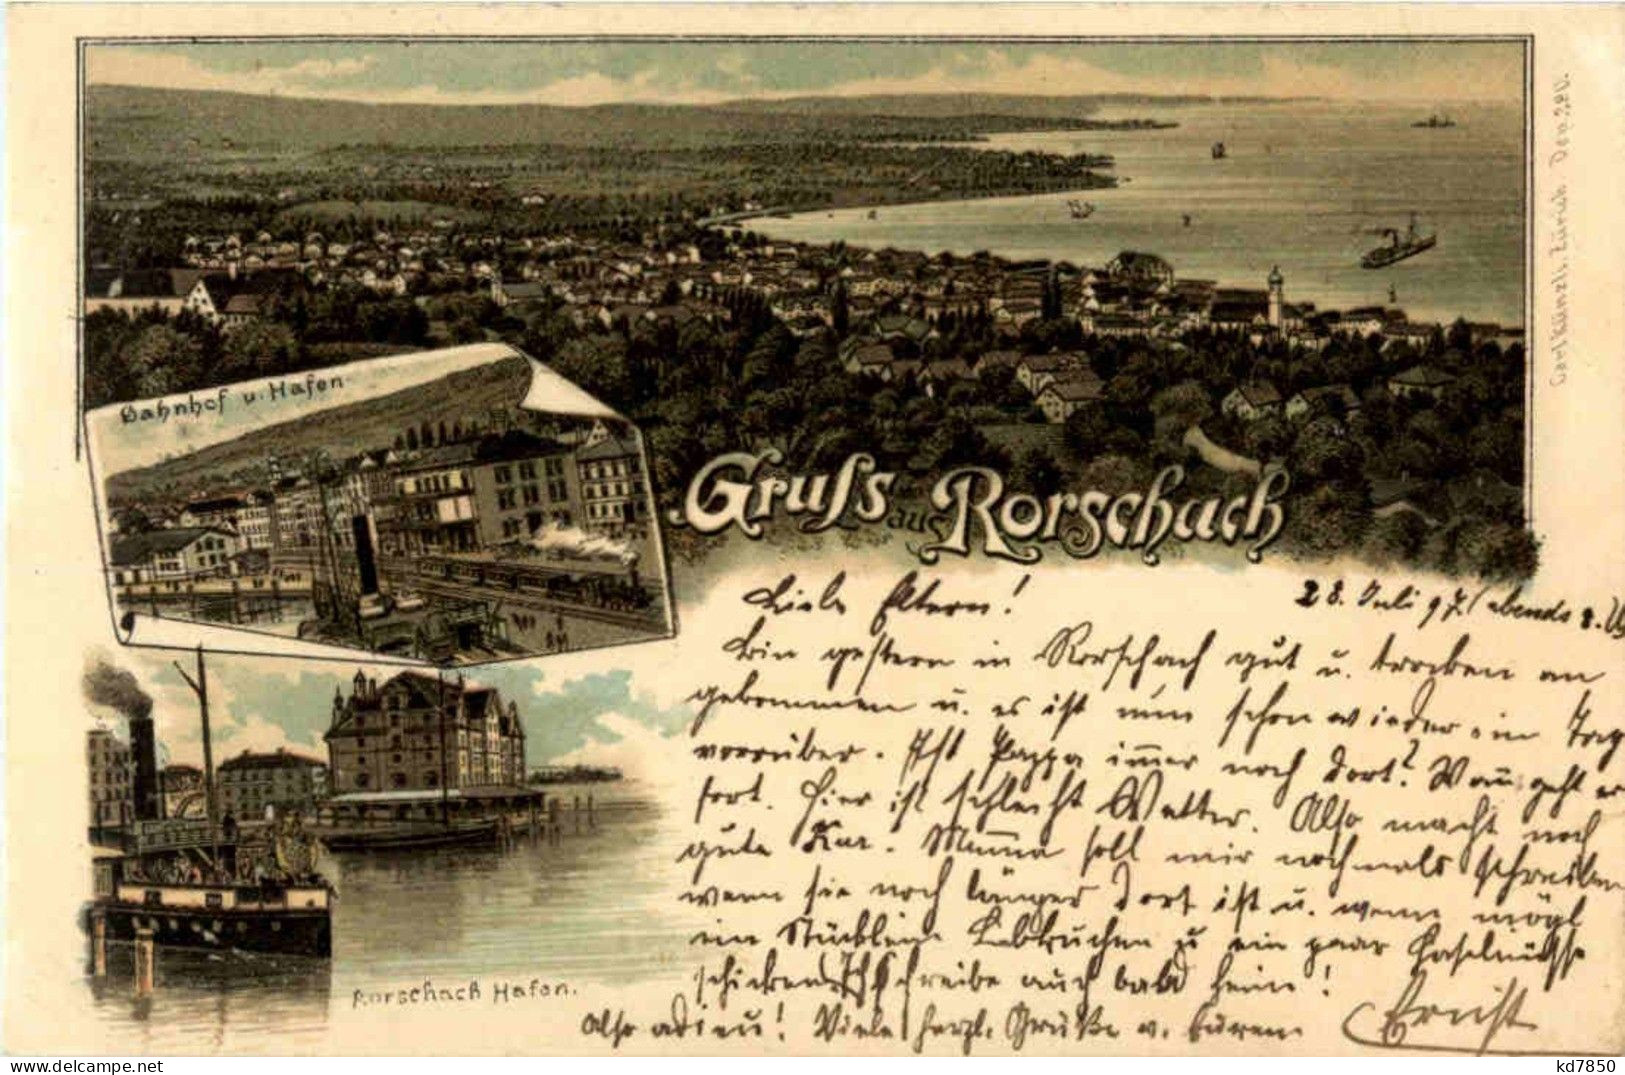 Carl Künzli, Zürich. Dep. 280.
Bahnhof u. Hafen
Gruss aus Rorschach
Liebe Eltern! 28. Juli 97. (abends 8.
Bin gestern in Rorschach gut u. trocken an
gekommen u. es ist nun schon wieder ein Tag
vorrüber. Ist Pappa immer noch dort? Wann geht er
fort. Hier ist schlecht Wetter. Also macht noch
gute Kur. Mamma soll mir nochmals schreiben
wenn sie noch länger dort ist u. wenn mögl
ein Stücklein Lebkuchen u ein paar Haselnüsse
schicken. Ich schreibe auch bald heim!
Also adieu! Viele herzl. Grüße v. Eurem Ernst
Rorschach Hafen.
kd7850